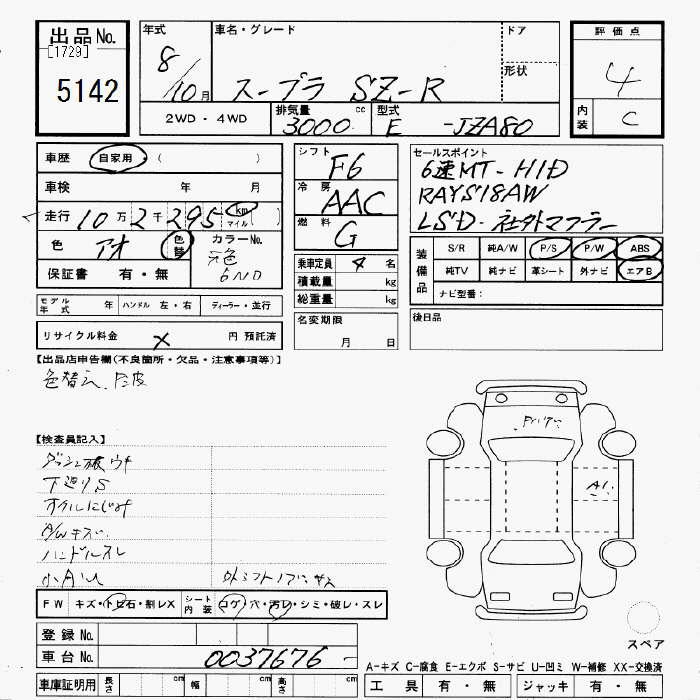 出品No. [1729] 5142
年式 8/10月
車名・グレード スープラ SZ-R
ドア
形状
評価点 4
内装 C
2WD・4WD
排気量 3000 cc
型式 E -JZA80
車歴 自家用・( )
車検 年 月
走行 10万2千295 km マイル ( )
色 アオ 色替 カラーNo. 元色 6ND
保証書 有・無
シフト F6
冷房 AAC
燃料 G
乗車定員 4 名
積載量 kg
総重量 kg
セールスポイント
6速MT-HID
RAYS18AW
LSD-社外マフラー
装備品 S/R 純A/W P/S P/W ABS
純TV 純ナビ 革シート 外ナビ エアB
ナビ型番:
モデル年式 年 ハンドル 左・右 ディーラー・並行
リサイクル料金 × 円 預託済
名変期限 月 日
後日品
【出品店申告欄(不良箇所・欠品・注意事項等)】
色替え
【検査員記入】
下廻りS
オイルにじみ
A/Wキズ
ハンドルスレ
小AU
外シフトノブ
FW キズ・トビ石・割レX シート内装 コゲ・穴・汚レ・シミ・破レ・スレ
A1
登録No.
車台No. 0037676-
車庫証明用 長さ cm 幅 cm 高さ cm
スペア
A-キズ C-腐食 E-エクボ S-サビ U-凹ミ W-補修 XX-交換済
工具 有・無 ジャッキ 有・無